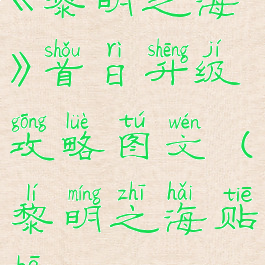 《黎明之海
shǒu rì shēng jí
》首日升级
gōng lüè tú wén
攻略图文（
lí míng zhī hǎi tiē
黎明之海贴